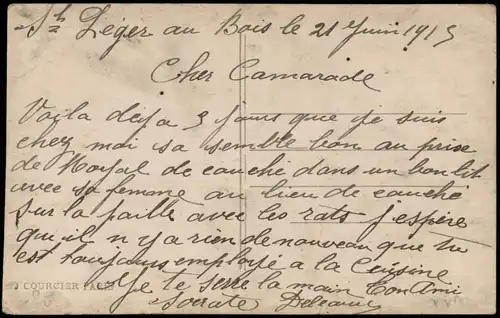 St Léger au Bois le 21 Juin 1915
Cher Camarade
Voila deja 3 jours que je suis
chez moi sa semble bon au prise
de de cauché dans un bon lit
avec sa femme au lieu de cauché
sur la paille avec les rats j'espère
qu'il n y a rien de nouveau que tu
est toujours employé a la Cuisine
Je te serre la main ton Ami
Socrate
COURCIER PARIS